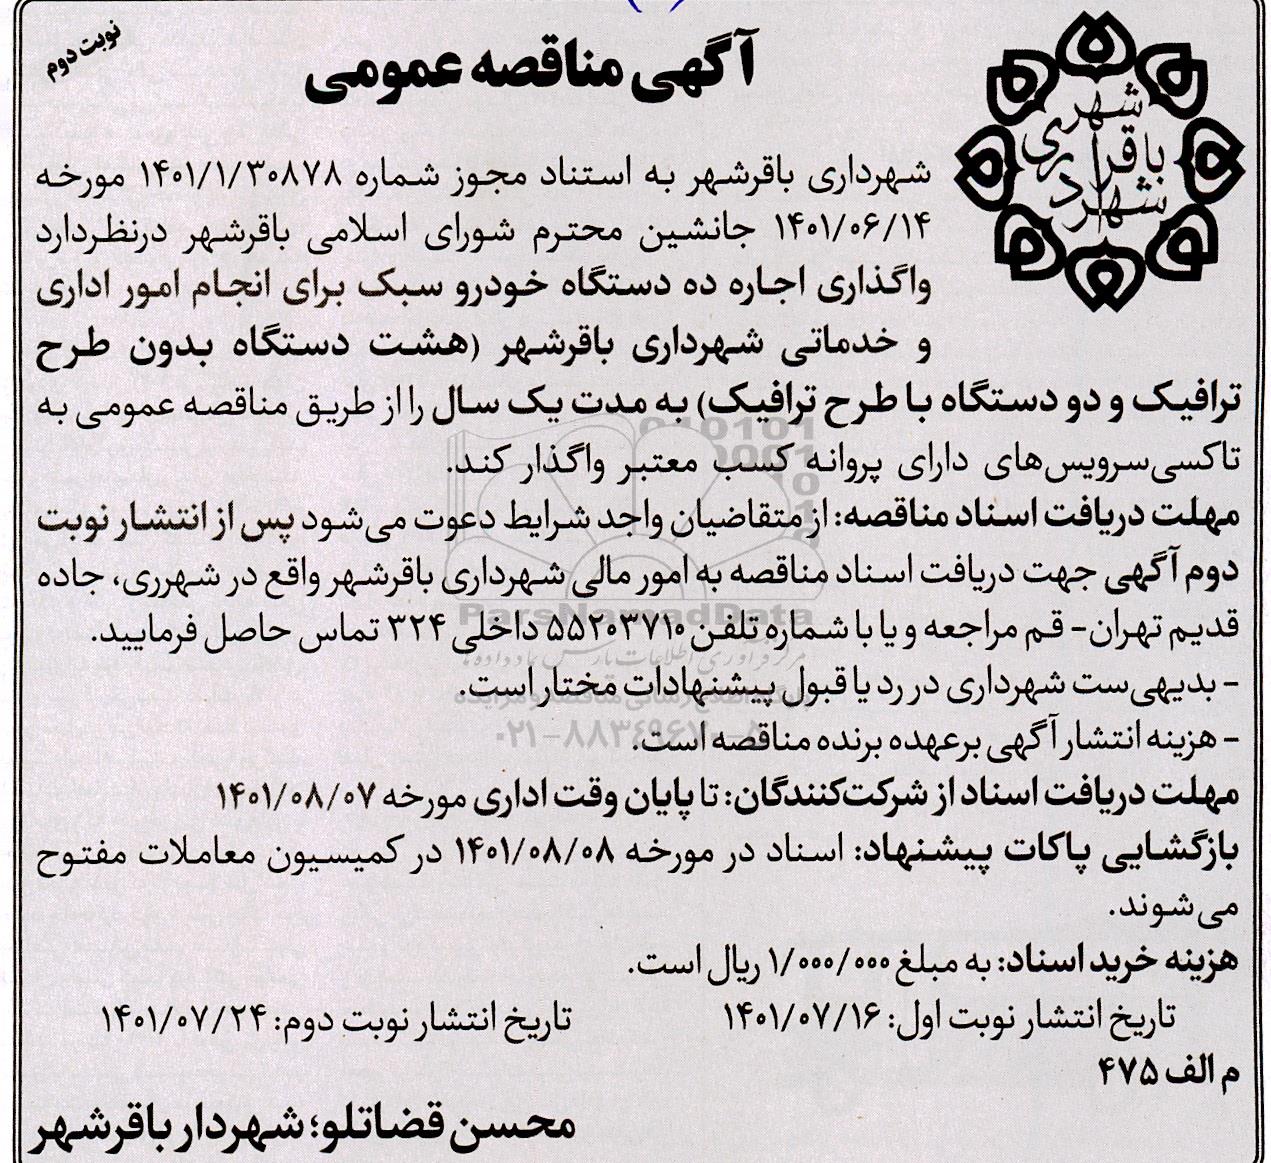 نوبت دوم
آگهی مناقصه عمومی
شهرداری باقرشهر
شهرداری باقرشهر به استناد مجوز شماره ۱۴۰۱/۱/۳۰۸۷۸ مورخه
۱۴۰۱/۰۶/۱۴ جانشین محترم شورای اسلامی باقرشهر درنظردارد
واگذاری اجاره ده دستگاه خودرو سبک برای انجام امور اداری
و خدماتی شهرداری باقرشهر (هشت دستگاه بدون طرح
ترافیک و دو دستگاه با طرح ترافیک) به مدت یک سال را از طریق مناقصه عمومی به
تاکسی‌سرویس‌های دارای پروانه کسب معتبر واگذار کند.
مهلت دریافت اسناد مناقصه: از متقاضیان واجد شرایط دعوت می‌شود پس از انتشار نوبت
دوم آگهی جهت دریافت اسناد مناقصه به امور مالی شهرداری باقرشهر واقع در شهرری، جاده
قدیم تهران- قم مراجعه و یا با شماره تلفن ۵۵۲۰۳۷۱۰ داخلی ۳۲۴ تماس حاصل فرمایید.
- بدیهی‌ست شهرداری در رد یا قبول پیشنهادات مختار است.
- هزینه انتشار آگهی برعهده برنده مناقصه است.
مهلت دریافت اسناد از شرکت‌کنندگان: تا پایان وقت اداری مورخه ۱۴۰۱/۰۸/۰۷
بازگشایی پاکات پیشنهاد: اسناد در مورخه ۱۴۰۱/۰۸/۰۸ در کمیسیون معاملات مفتوح
می‌شوند.
هزینه خرید اسناد: به مبلغ ۱/۰۰۰/۰۰۰ ریال است.
تاریخ انتشار نوبت اول: ۱۴۰۱/۰۷/۱۶ تاریخ انتشار نوبت دوم: ۱۴۰۱/۰۷/۲۴
م الف ۴۷۵
محسن قضاتلو؛ شهردار باقرشهر
ParsNamadData